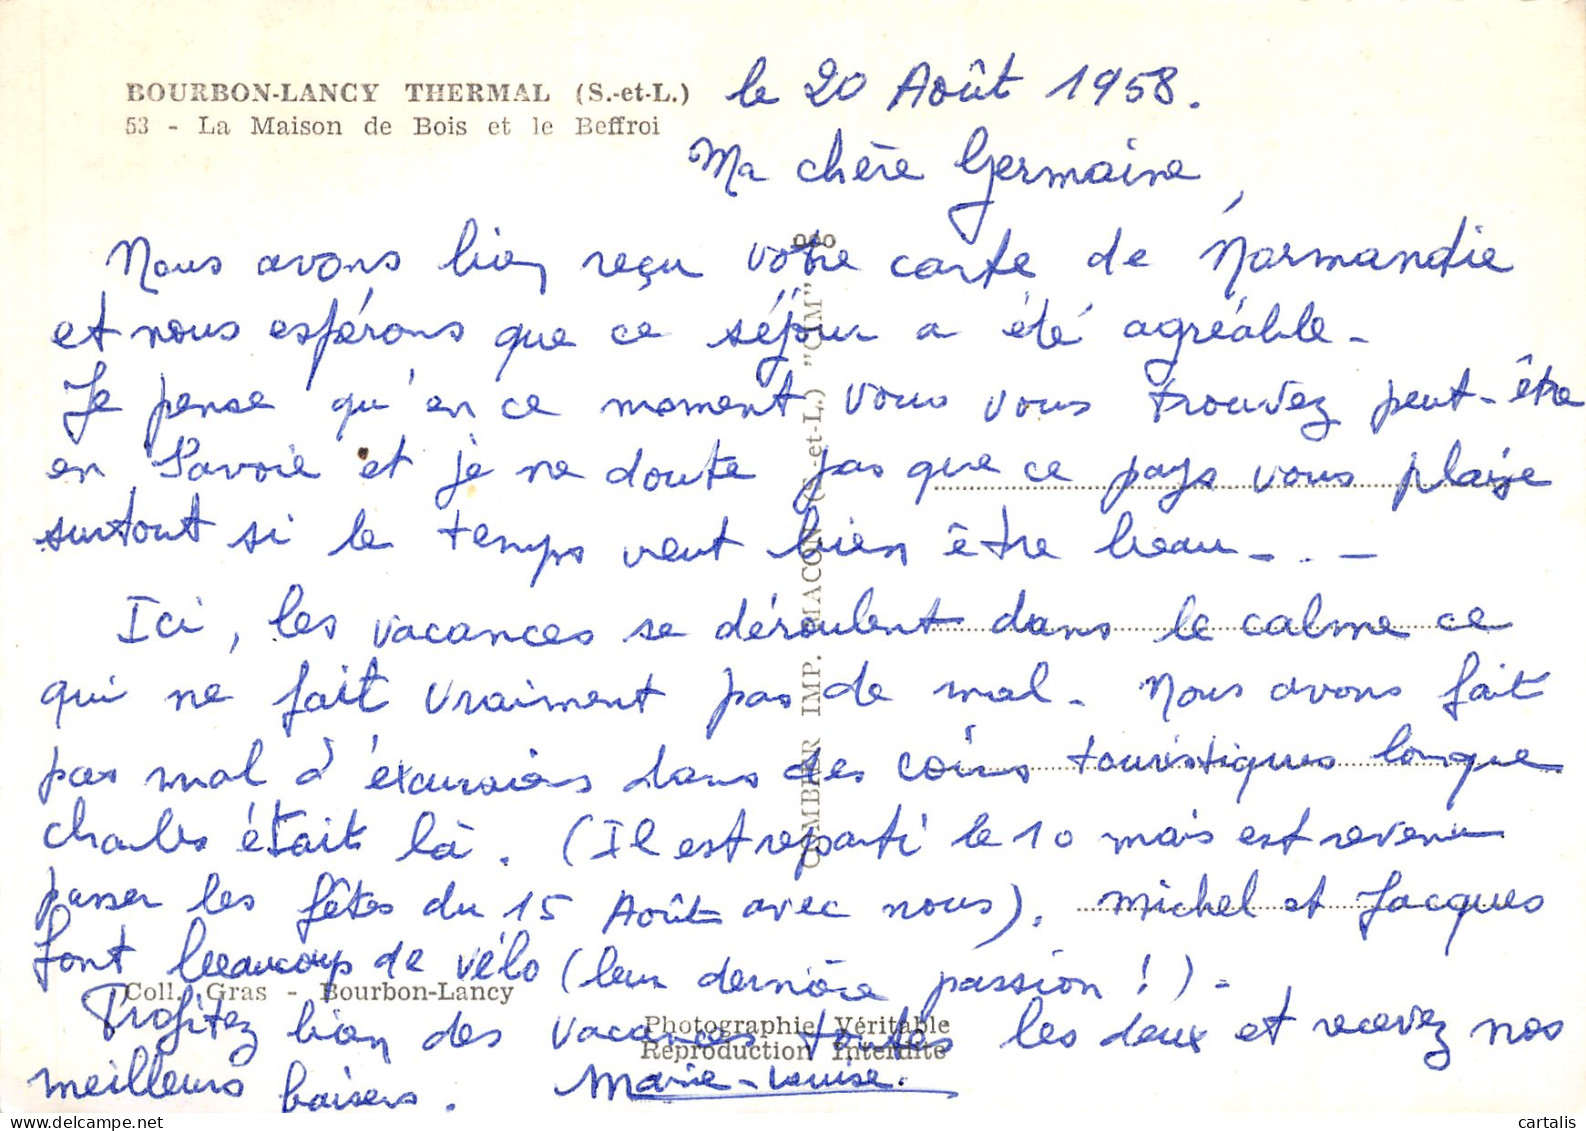 BOURBON-LANCY THERMAL (S.-et-L.)
53 - La Maison de Bois et le Beffroi
le 20 Août 1958.
Ma chère Germaine,
Nous avons bien reçu votre carte de Normandie
et nous espérons que ce séjour a été agréable -
Je pense qu'en ce moment vous vous trouvez peut-être
en Savoie et je ne doute pas que ce pays vous plaise
surtout si le temps veut bien être beau - . -
Ici, les vacances se déroulent dans le calme ce
qui ne fait vraiment pas de mal. Nous avons fait
pas mal d'excursions dans des coins touristiques lorsque
Charles était là. (Il est reparti le 10 mais est revenu
passer les fêtes du 15 Août avec nous). Michel et Jacques
font beaucoup de vélo (leur dernière passion !) -
Profitez bien des vacances toutes les deux et recevez nos
meilleurs baisers. Marie-Louise.
COMBIER IMP. MACON (S.-et-L.) "CIM"
Coll. Gras - Bourbon-Lancy
Photographie Véritable
Reproduction Interdite
cartalis